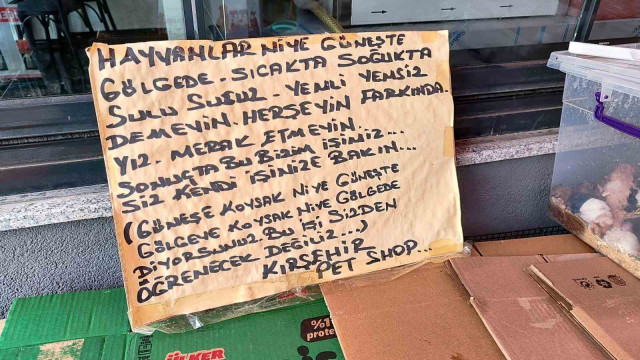 HAYVANLAR NİYE GÜNEŞTE
GÖLGEDE - SICAKTA SOĞUKTA
SULU SUSUZ - YEMLİ YEMSİZ
DEMEYİN. HERŞEYİN FARKINDA.
YIZ. MERAK ETMEYİN
SONUÇTA BU BİZİM İŞİNİZ...
SİZ KENDİ İŞİNİZE BAKIN...
(GÜNEŞE KOYSAK NİYE GÜNEŞTE
GÖLGEYE KOYSAK NİYE GÖLGEDE
DİYORSUNUZ. BU İŞİ SİZDEN
ÖĞRENECEK DEĞİLİZ...)
KIRŞEHİR
PET SHOP...
ÜLKER
prote